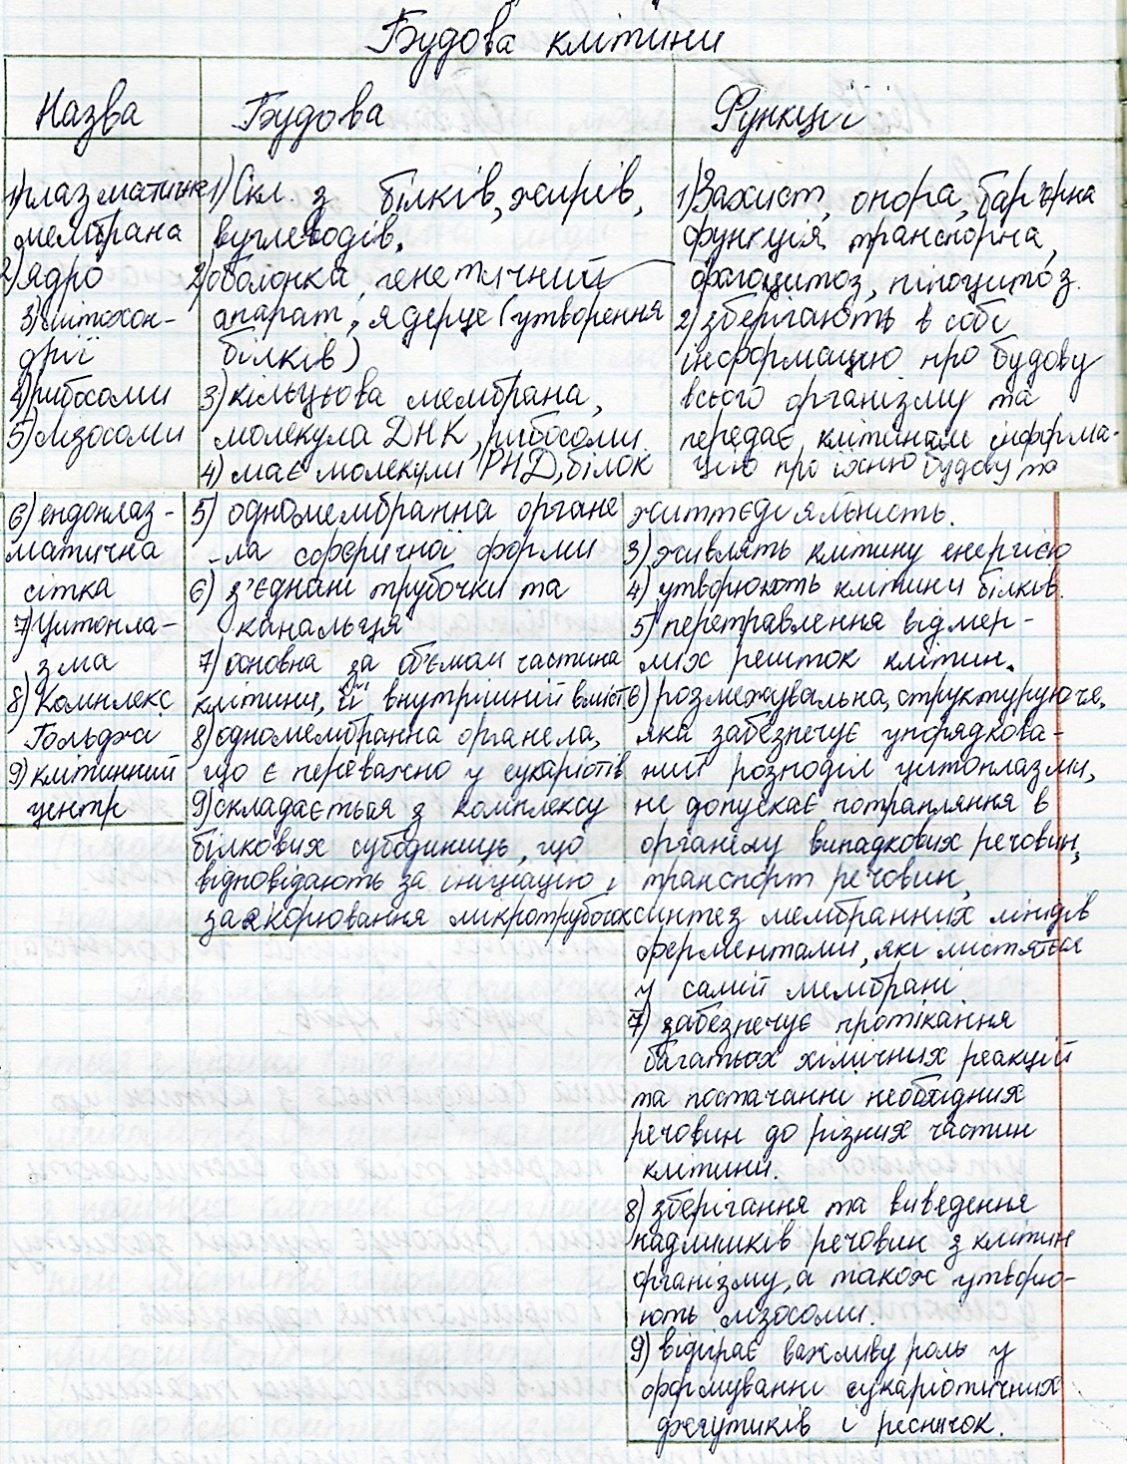 Будова клітини
Назва
Будова
Функції
1) плазматична
мембрана
2) ядро
3) мітохон-
дрії
4) рибосоми
5) лізосоми
6) ендоплаз-
матична
сітка
7) Цитопла-
зма
8) Комплекс
Гольджі
9) клітинний
центр
1) Скл. з білків, жирів,
вуглеводів.
2) оболонка, генетичний
апарат, ядерце (утворення
білків)
3) кільцьова мембрана,
молекула ДНК, рибосоми.
4) має молекули РНД, білок
5) одномембранна органе
-ла сферичної форми
6) з'єднані трубочки та
канальця
7) основна за об'ємом частина
клітини, її внутрішній вміст
8) одномембранна органела,
що є переважно у еукаріотів
9) складається з комплексу
білкових субодиниць, що
відповідають за ініціацію і
заякорювання мікротрубочок
1) Захист, опора, бар'єрна
функція, транспорна,
фагоцитоз, піноцитоз.
2) зберігають в собі
інформацію про будову
всього організму та
передає клітинам інформа-
цію про їхню будову та
життєдіяльність.
3) живлять клітину енергією
4) утворюють клітини білків.
5) перетравлення відмер-
лих решток клітин.
6) розмежувальна, структуруюче,
яка забезпечує упорядкова-
ний розподіл цитоплазми,
не допускає потрапляння в
органелу випадкових речовин,
транспорт речовин,
синтез мембранних ліпідів
ферментами, які містяться
у самій мембрані
7) забезпечує протікання
багатьох хімічних реакцій
та постачанні необхідних
речовин до різних частин
клітини.
8) зберігання та виведення
надлишків речовин з клітин
організму, а також утворю-
ють лізосоми.
9) відіграє важливу роль у
формуванні еукаріотичних
джгутиків і ресничок.